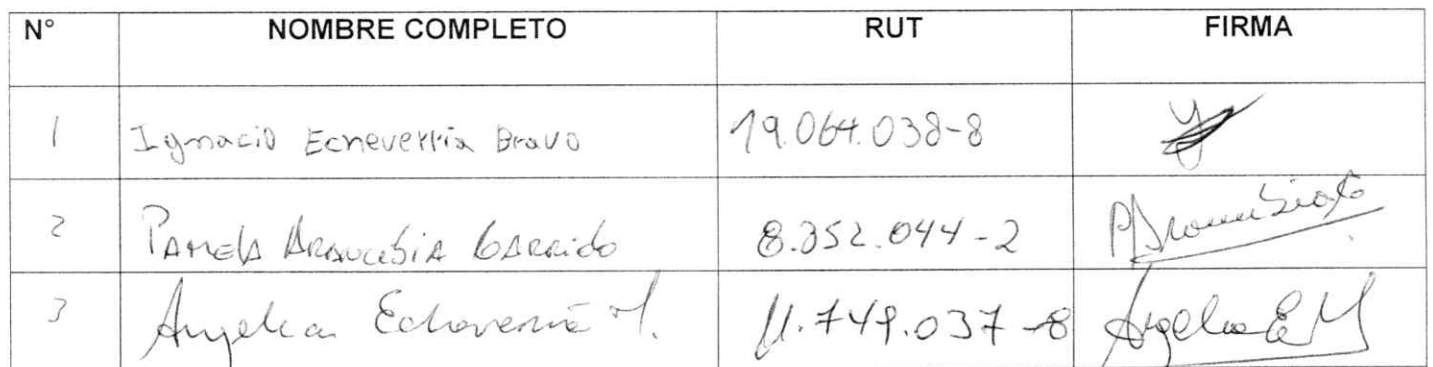 N° NOMBRE COMPLETO RUT FIRMA
1 Ignacio Echeverria Bravo 19.064.038-8
2 PAMELA ARAUCIBIA GARRIDO 8.352.044-2
3 Angelica Echeverria M. 11.749.037-8 Angelica E M